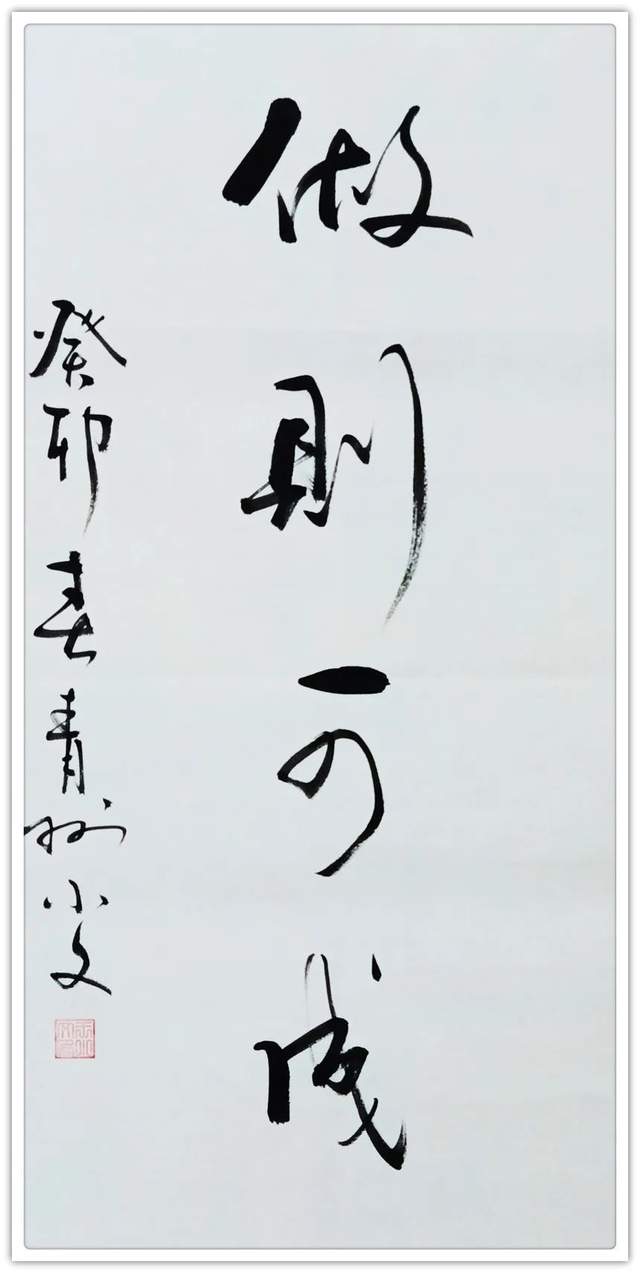 做则可成
癸卯春青州小文